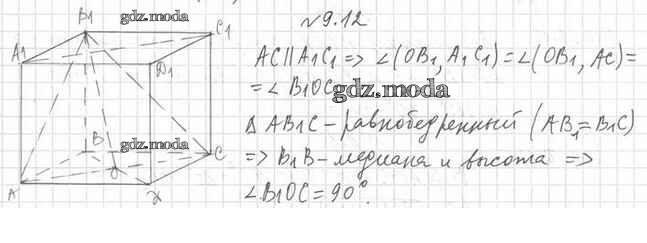 B1
gdz.moda
C1
A1
D1
B
gdz.moda
C
O
A
D
№9.12
AC∥A1C1 => ∠(OB1, A1C1) = ∠(OB1, AC) =
= ∠B1OC
gdz.moda
Δ AB1C - равнобедренный (AB1 = B1C)
=> B1B - медиана и высота =>
∠B1OC = 90°.